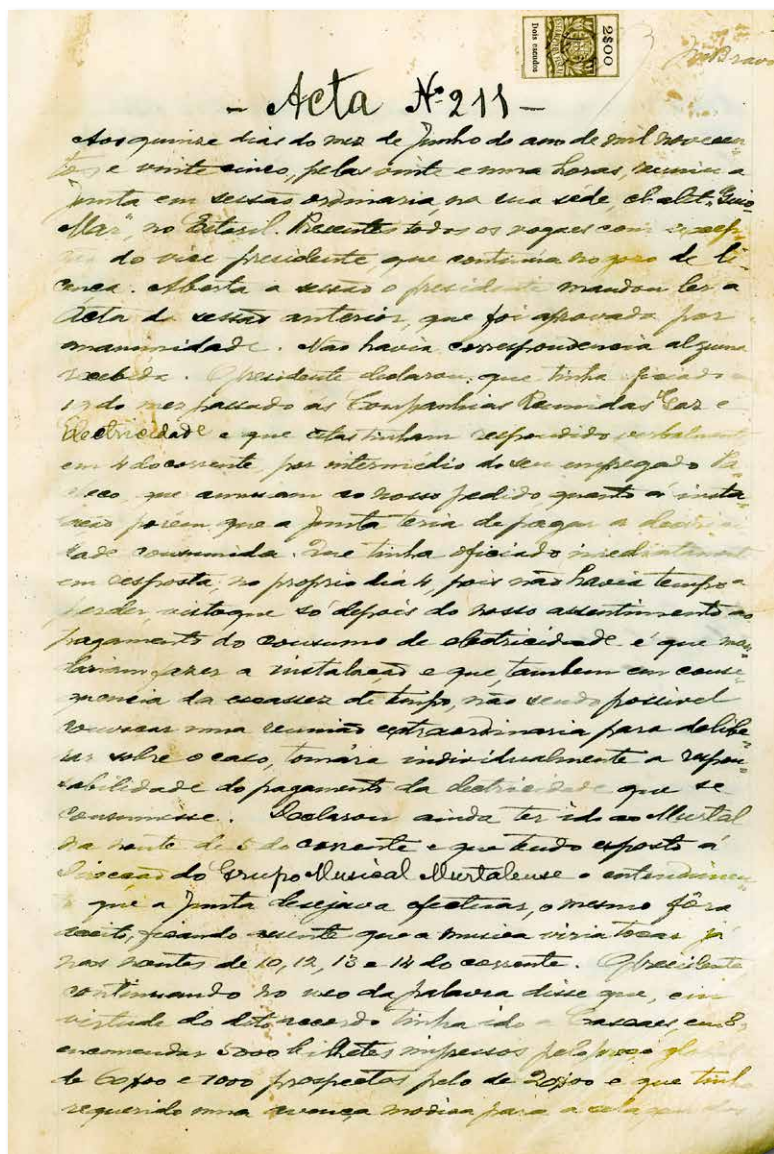 2$00
Dois escudos
- Acta Nº 211 -
Aos quinze dias do mez de Junho do ano de mil novecen-
tos e vinte cinco, pelas vinte e uma horas, reuniu a
Junta em sessão ordinaria, na sua séde, chalet "Guio-
Mar", no Estoril. Presentes todos os vogaes com excep-
ção do vice presidente, que continua no gozo de li-
cença. Aberta a sessão o presidente mandou ler a
Acta da sessão anterior, que foi aprovada por
unanimidade. Não havia correspondencia alguma
recebida. O presidente declarou que tinha oficiado a
do mez passado ás Companhias Reunidas "Gaz e
Electricidade" e que estas tinham respondido verbalmente
em 4 do corrente, por intermédio do seu empregado
que anuiam ao nosso pedido quanto á insta-
lação porém que a Junta teria de pagar a electrici-
dade consumida. Que tinha oficiado imediatamente
em resposta, no proprio dia 4, pois não havia tempo a
perder, visto que só depois do nosso assentimento ao
pagamento do consumo de electricidade é que man-
dariam fazer a instalação e que, tambem em conse-
quencia da escassez de tempo, não sendo possivel
convocar uma reunião extraordinaria para delibe-
rar sobre o caso, tomára individualmente a respon-
sabilidade do pagamento da electricidade que se
consumisse. Declarou ainda ter ido ao Murtal
na noute de 5 do corrente e que tendo exposto á
Direcção do Grupo Musical Murtalense o entendimen-
to que a Junta desejava efectuar, o mesmo fôra
aceito, ficando assente que a musica viria tocar já
nas noutes de 10, 12, 13 e 14 do corrente. O presidente
continuando no uso da palavra disse que, em
virtude do dito acordo tinha ido a Cascaes, em 8,
encomendar 5000 bilhetes impressos pelo preço global
de 60$00 e 1000 prospectos pelo de 20$00 e que tinha
requerido uma avença modica para a selagem dos